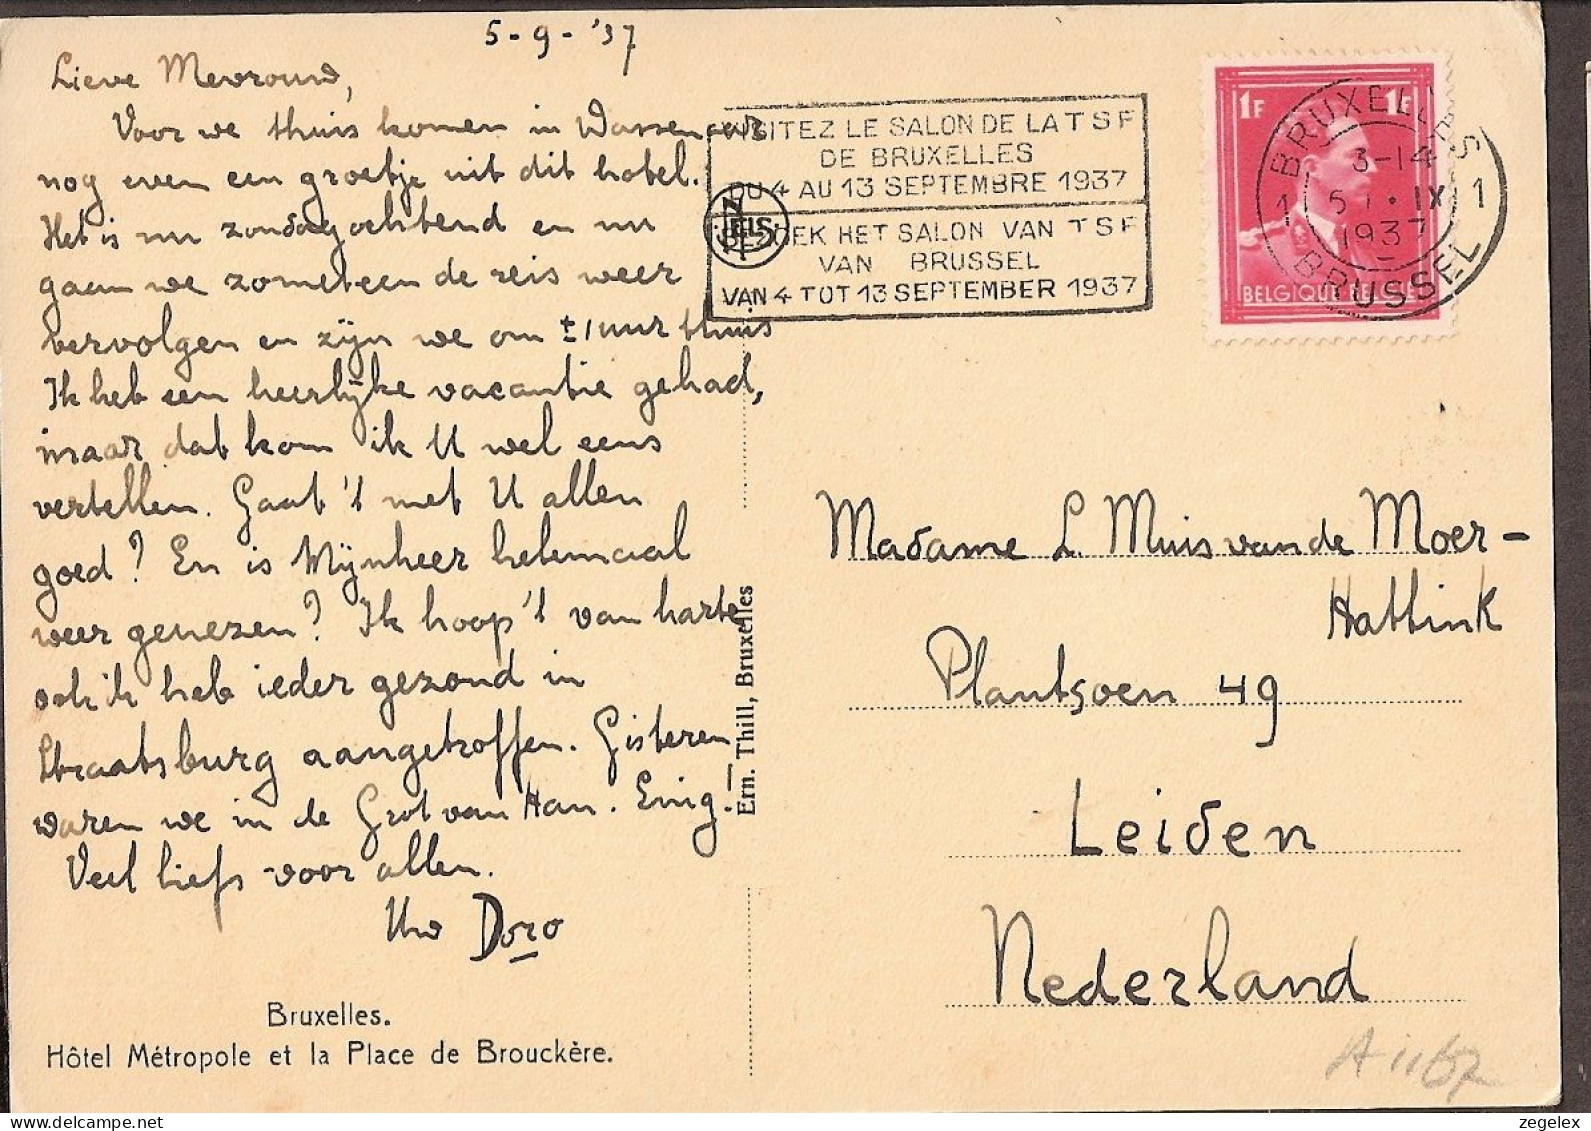 5-9-'37
Lieve Mevrouw,
Voor we thuis komen in Wassenaar
nog even een groetje uit dit hotel.
Het is nu zondagochtend en nu
gaan we zometeen de reis weer
vervolgen en zijn we om ± 1 uur thuis
Ik heb een heerlijke vacantie gehad,
maar dat kom ik U wel eens
vertellen. Gaat 't met U allen
goed? En is Mijnheer helemaal
weer genezen? Ik hoop 't van harte
ook ik heb ieder gezond in
Straatsburg aangetroffen. Gisteren
waren we in de Grot van Han. Enig!
Veel liefs voor allen.
Uw Doro
Bruxelles.
Hôtel Métropole et la Place de Brouckère.
Ern. Thill, Bruxelles
NELS
VISITEZ LE SALON DE LA T S F
DE BRUXELLES
DU 4 AU 13 SEPTEMBRE 1937
BEZOEK HET SALON VAN T S F
VAN BRUSSEL
VAN 4 TOT 13 SEPTEMBER 1937
1F 1F
BELGIQUE BELGIE
1 BRUXELLES 1
3-14
5 IX
1937
BRUSSEL
Madame L. Muis van de Moer-
Hattink
Plantsoen 49
Leiden
Nederland
zegelex